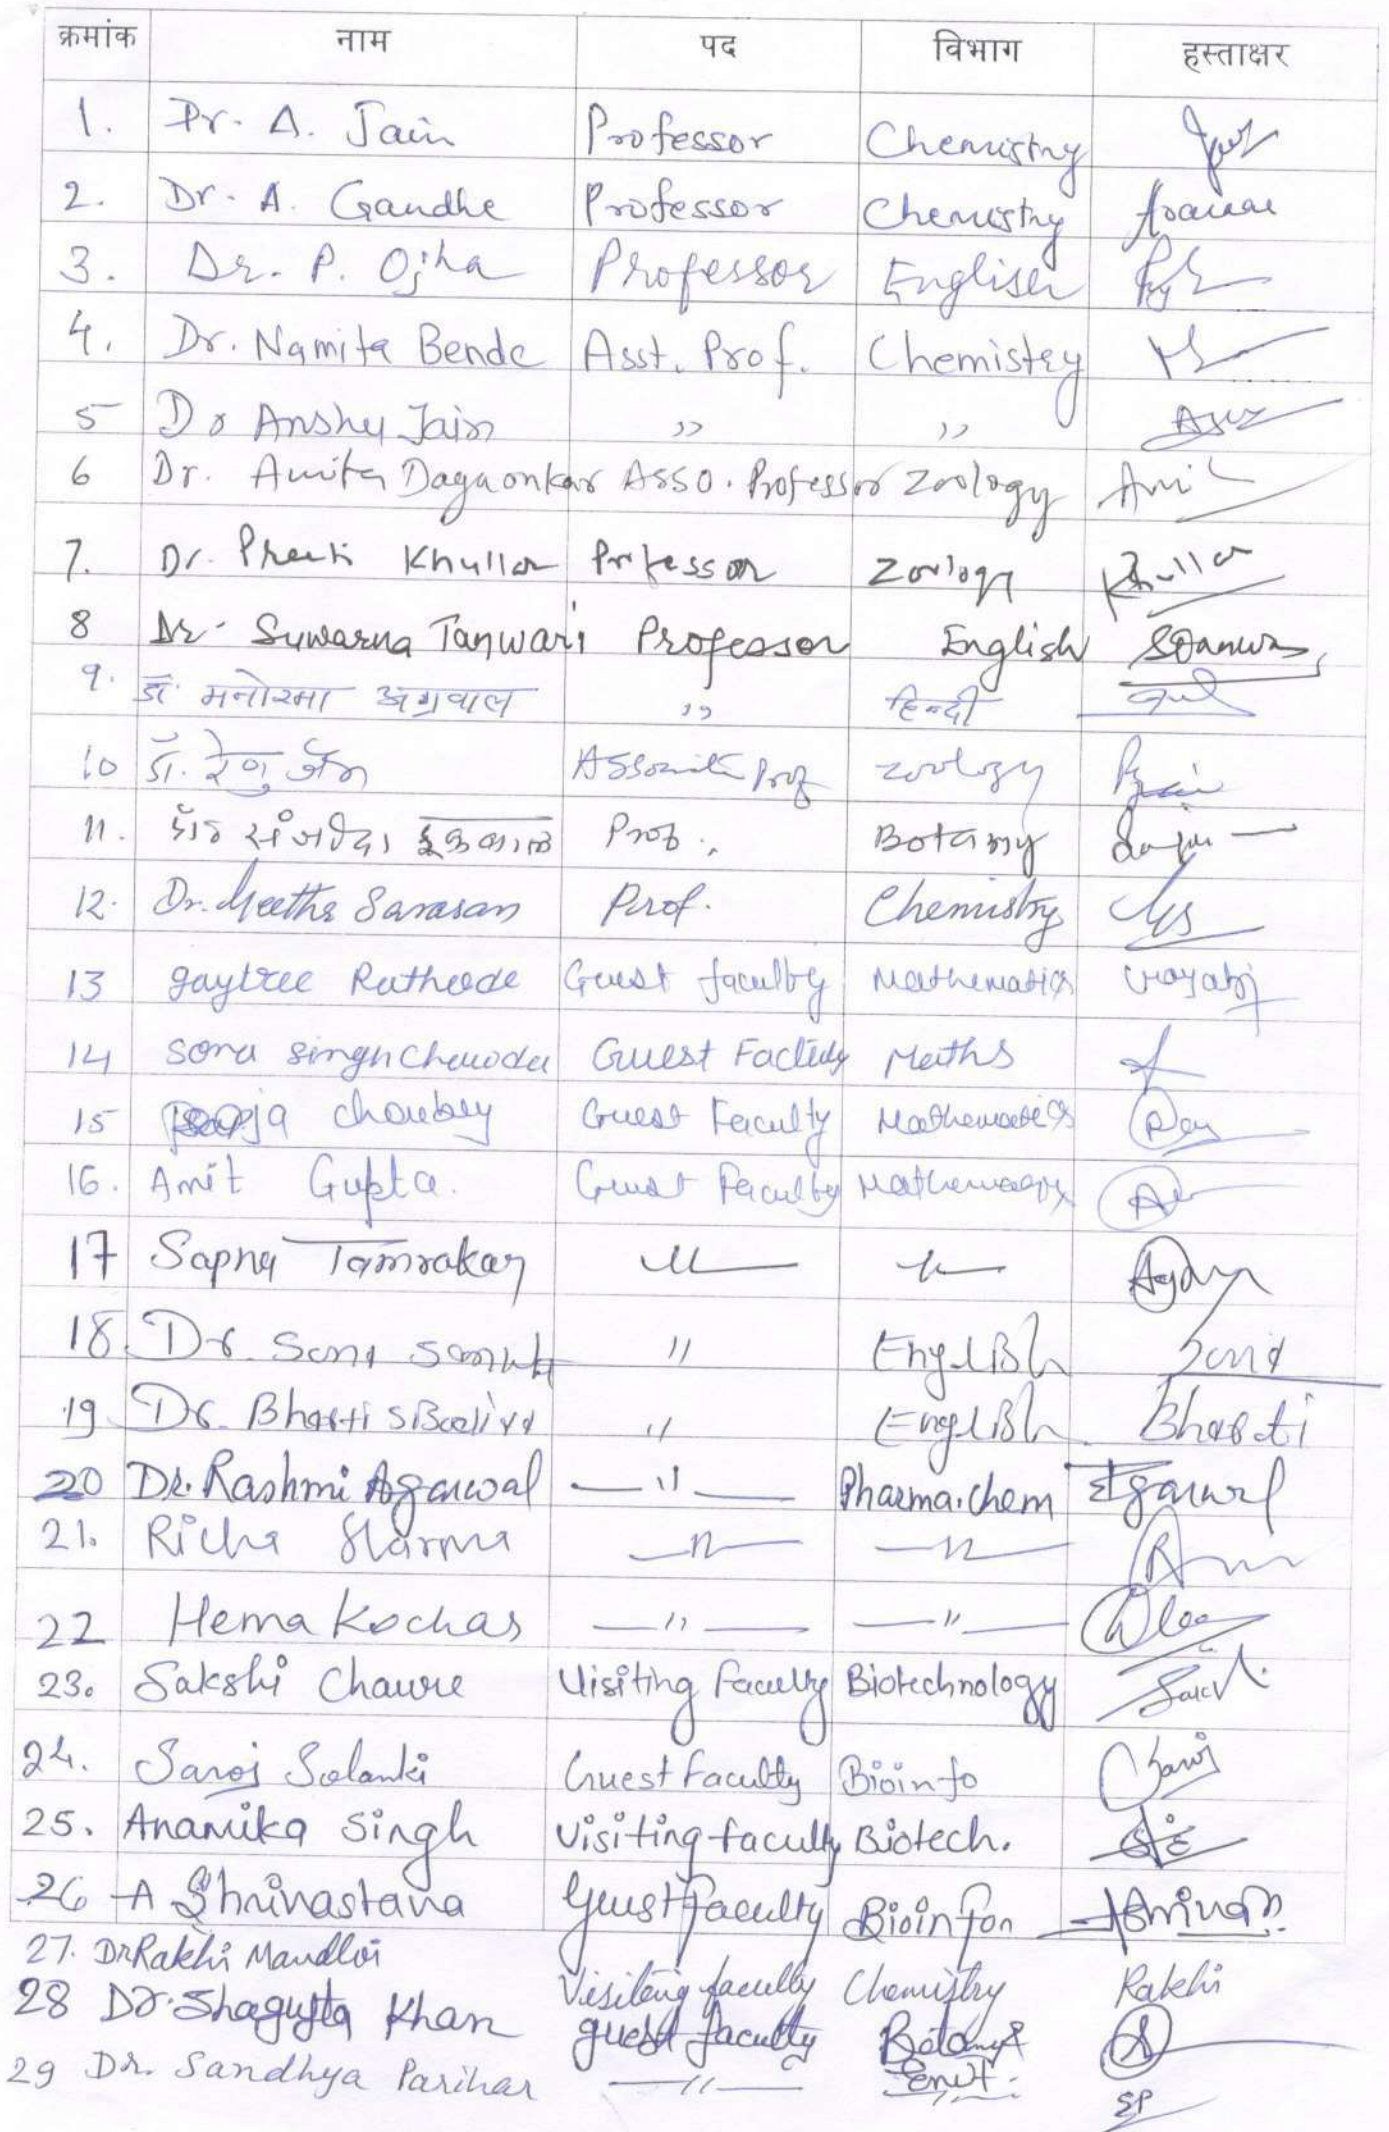 क्रमांक नाम पद विभाग हस्ताक्षर
1. Dr. A. Jain Professor Chemistry
2. Dr. A. Gandhe Professor Chemistry
3. Dr. P. Ojha Professor English
4. Dr. Namita Bende Asst. Prof. Chemistry
5 Dr Anshu Jain ,, ,,
6 Dr. Amita Dagaonkar Asso. Professor Zoology
7. Dr. Preeti Khullar Professor Zoology Khullar
8 Dr. Suwarna Tanwari Professor English
9. डॉ. मनोरमा अग्रवाल ,, हिन्दी
10 डॉ. रेणु जैन Associate Prof Zoology
11. Prof. Botany
12. Dr. Geetha Sarasan Prof. Chemistry
13 gaytree Rathode Guest faculty Mathematics
14 Sona Singh Guest Faculty Maths
15 choubey Guest Faculty Mathematics
16. Amit Gupta. Guest Faculty Mathematics
17 Sapna Tamrakar —,,— —,,—
18 Dr. Sona " English Sona
19 Dr. Bharti " English Bharti
20 Dr. Rashmi Agarwal —"— Pharma.chem Agarwal
21. Richa Sharma —"— —"—
22 Hema Kochar —"— —"—
23. Sakshi Chawre Visiting Faculty Biotechnology
24. Saroj Solanki Guest Faculty Bioinfo Saroj
25. Anamika Singh Visiting faculty Biotech.
26 A Shrivastava Guest faculty Bioinfon
27. Dr Rakhi Mandloi Visiting faculty Chemistry Rakhi
28 Dr. Shagufta Khan guest faculty Botany &
Envt.
29 Dr. Sandhya Parihar —"— —"— SP